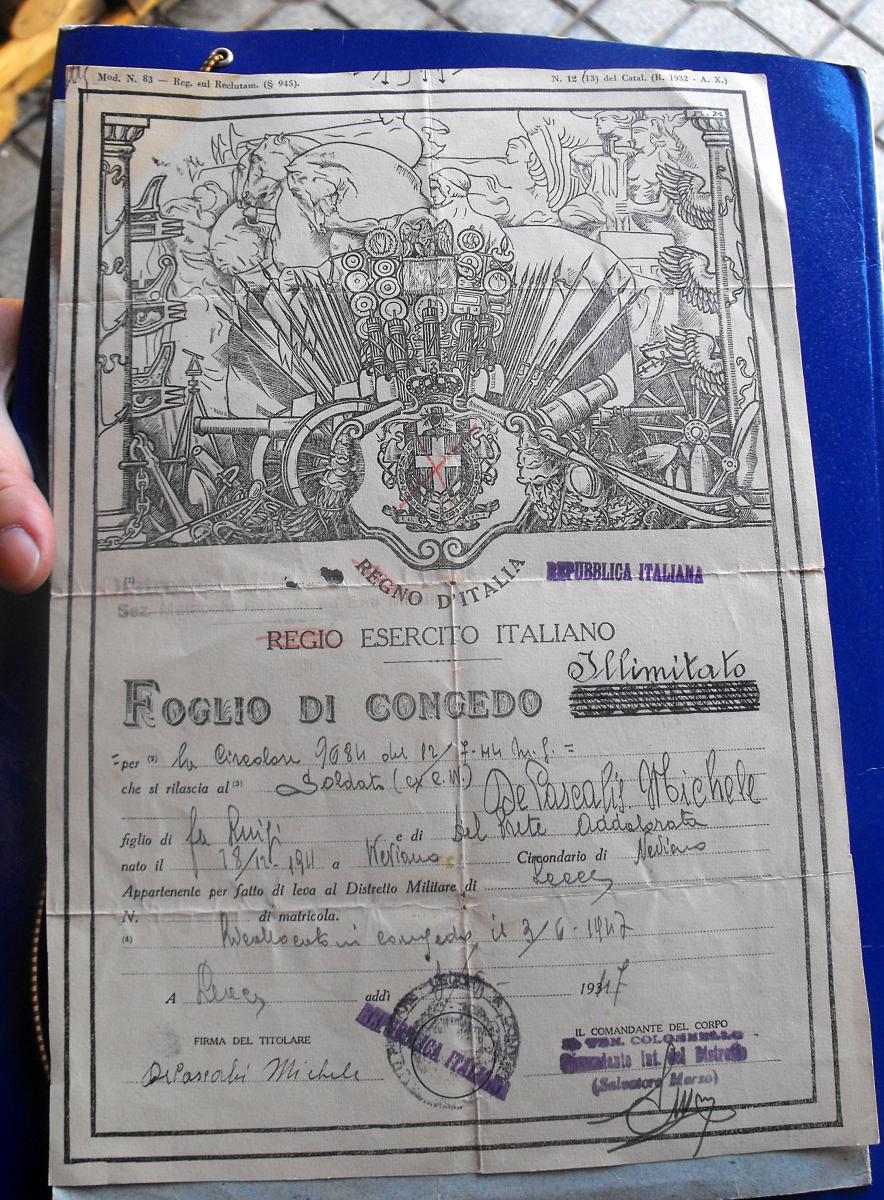 Mod. N. 83 — Reg. sul Reclutam. (§ 945).
N. 12 (13) del Catal. (R. 1932 - A. X.)
REGNO D'ITALIA
REPUBBLICA ITALIANA
(1)
Sez.
REGIO ESERCITO ITALIANO
FOGLIO DI CONGEDO Illimitato
=per (2) la Circolare 9084 del 12/7-44 M.G. =
che si rilascia al (3) Soldato (ex De Pascalis Michele
figlio di fu Luigi e di Del Prete Addolorata
nato il 28/12-1911 a Neviano Circondario di Neviano
Appartenente per fatto di leva al Distretto Militare di Lecce
N. di matricola.
(4) Ricollocato in congedo il 3/6-1947
A Lecce addì 1947
REPUBBLICA ITALIANA
FIRMA DEL TITOLARE
De Pascalis Michele
IL COMANDANTE DEL CORPO
TEN. COLONNELLO
Comandante Int. del Distretto
(Salvatore Marzo)